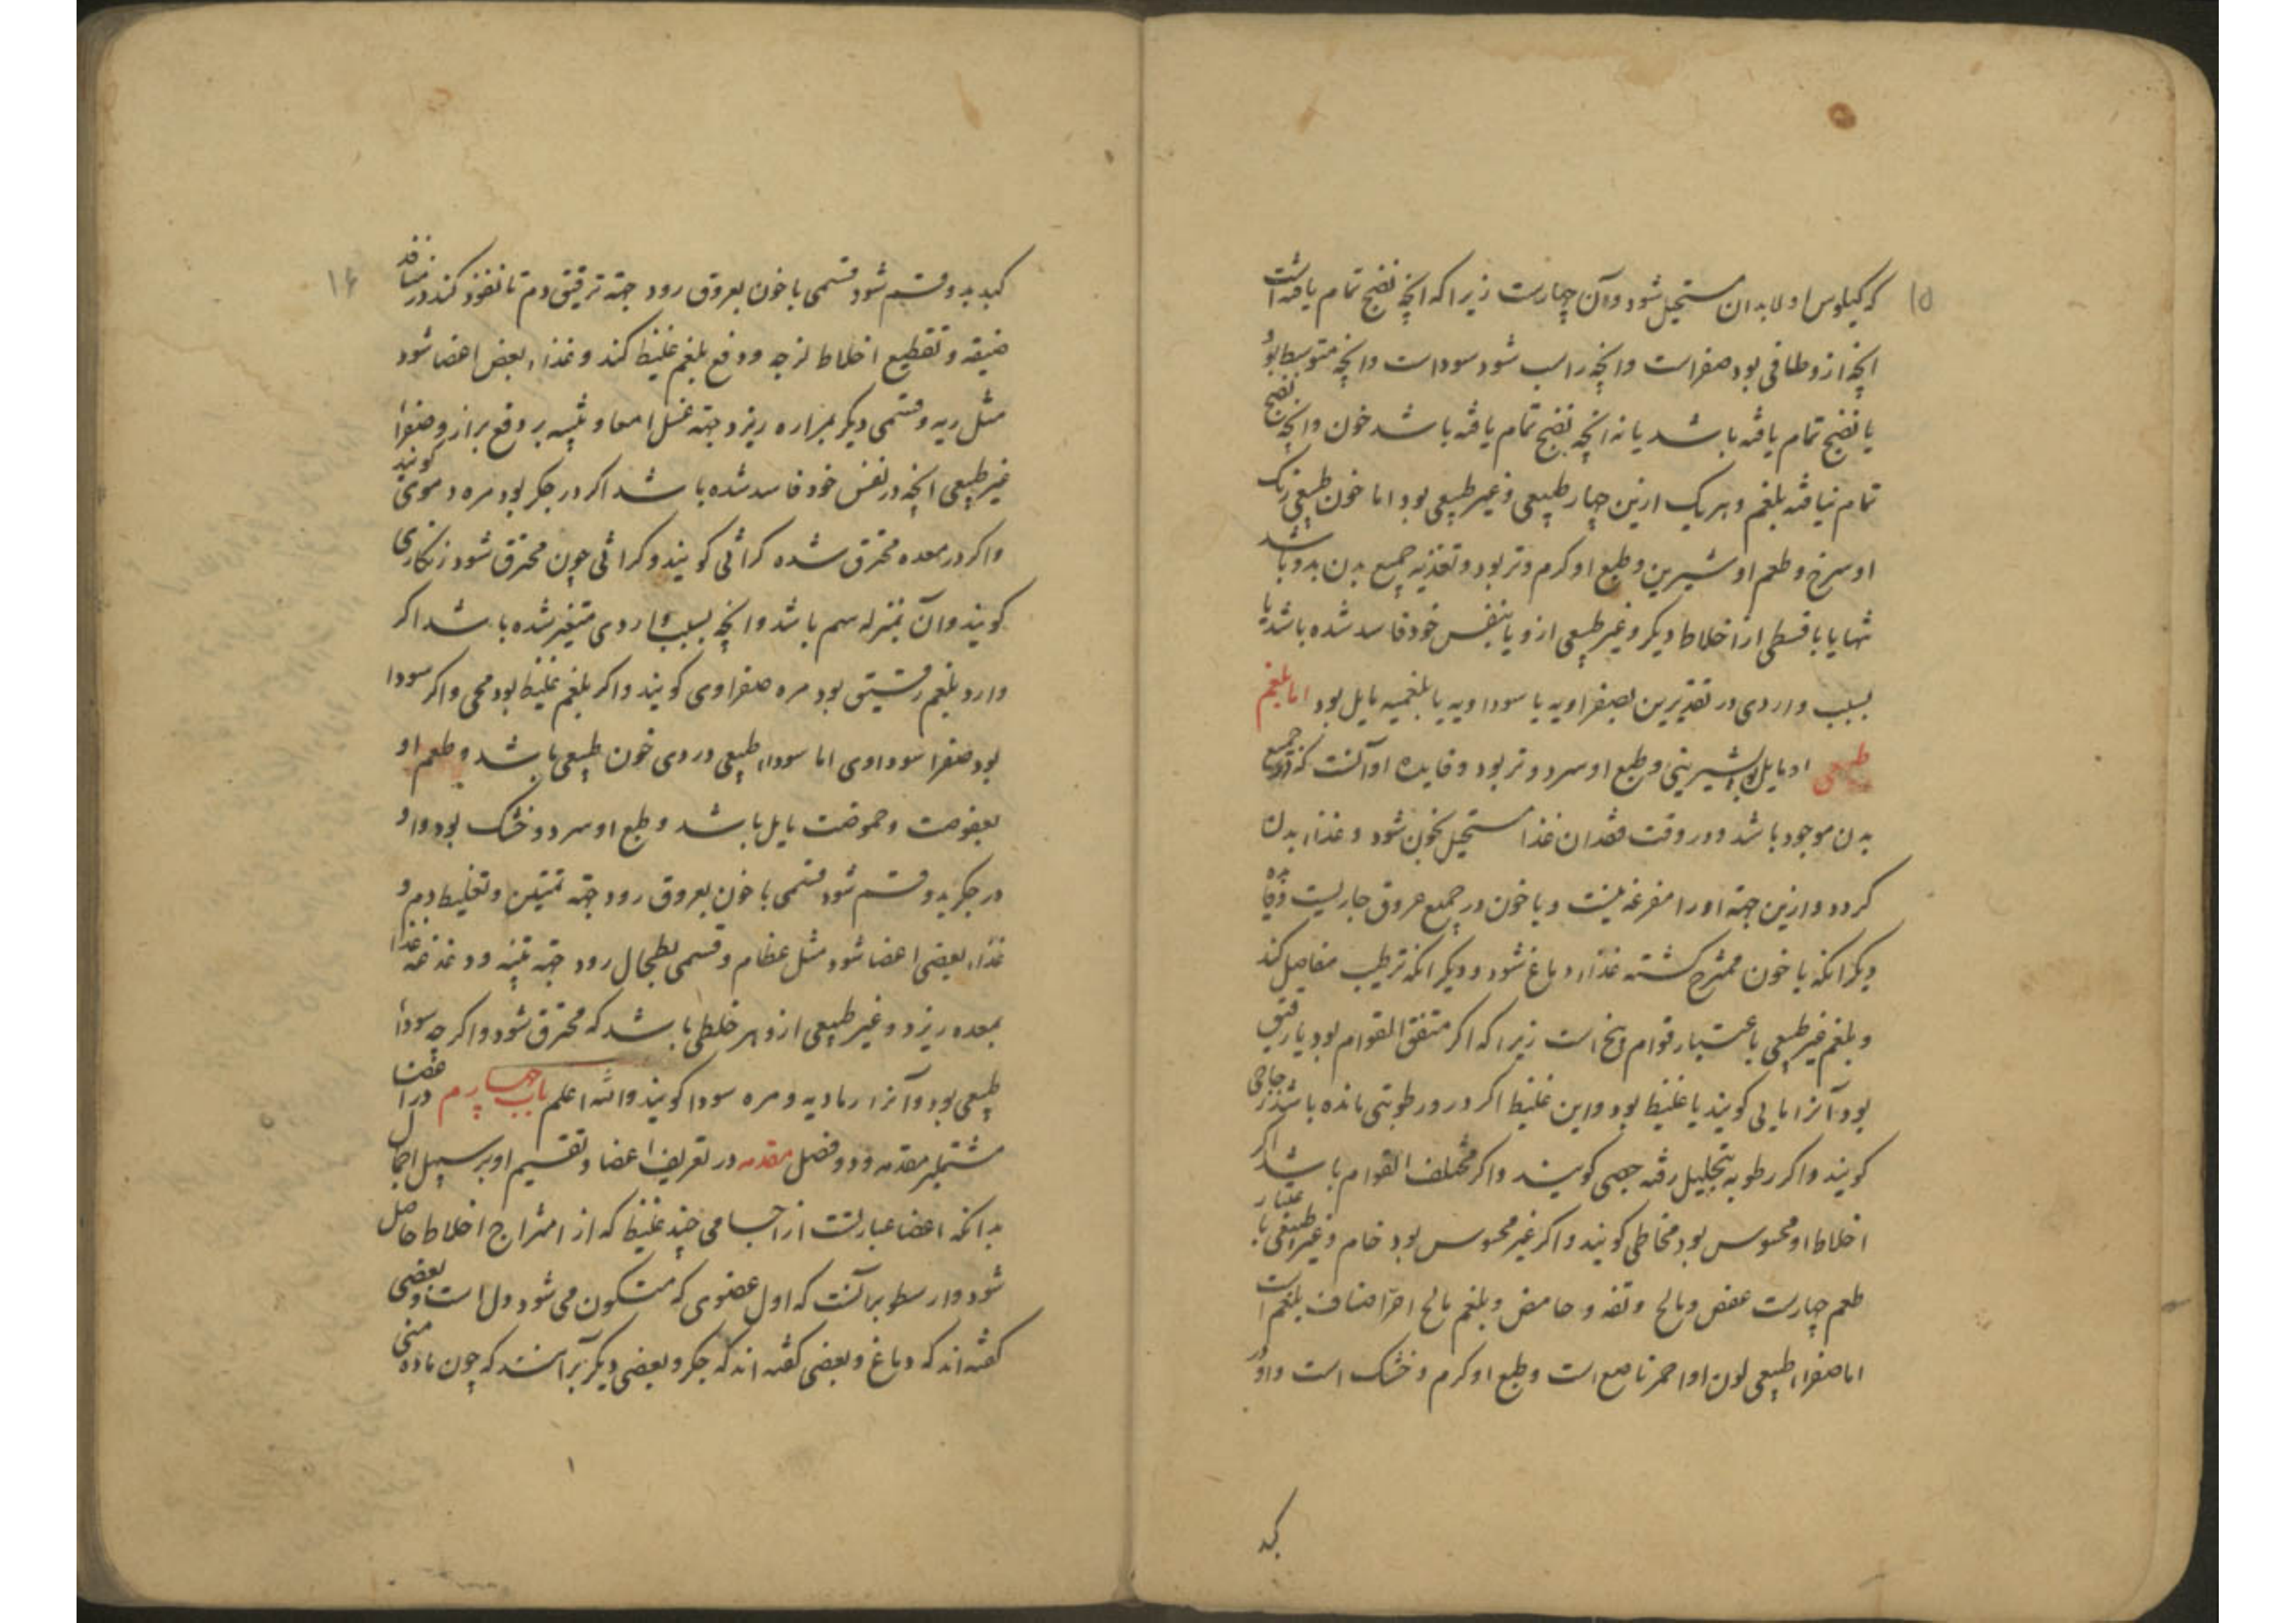 ۱۵
که کیلوس اولا بدان مستحیل شود و آن چهارست زیرا که انچه نضج تمام یافته است
انچه ازو طافی بود صفراست و انچه راسب شود سوداست و انچه متوسط بود
یا نضج تمام یافته باشد یا نه انچه نضج تمام یافته باشد خون و انچه نضج
تمام نیافته بلغم و هریک ازین چهار طبیعی و غیر طبیعی بود اما خون طبیعی رنک
او سرخ و طعم او شیرین و طبع او کرم و تر بود و تغذیه جمیع بدن بدو باشد
تنها یا با قسطی از اخلاط دیکر و غیر طبیعی ازو یا بنفس خود فاسد شده باشد یا
بسبب واردی درین تقدیرین بصفراویه یا سوداویه یا بلغمیه مایل بود اما بلغم
طبیعی او مایل بود بشیرینی و طبع او سرد و تر بود و فایده او آنست که در جمیع
بدن موجود باشد و در وقت فقدان غذا مستحیل بخون شود و غذاء بدن
کردد و ازین جهة او را مفرغه نیست و با خون در جمیع عروق جاریست و فایده
دیکر انکه با خون ممتزج کشته غذاء دماغ شود و دیکر انکه ترطیب مفاصل کند
و بلغم غیر طبیعی باعتبار قوام پنج است زیرا که اکر متفق القوام بود یا رقیق
بود آنرا مایی کویند یا غلیظ بود و این غلیظ اکر درو رطوبتی مانده باشد زجاجی
کویند و اکر رطوبه بتحلیل رفته جصی کویند و اکر مختلف القوام باشد اکر
اختلاط او محسوس بود مخاطی کویند و اکر غیر محسوس بود خام و غیر طبیعی باعتبار
طعم چهارست عفص و مالح و تفه و حامض و بلغم مالح احر اصناف بلغم است
اما صفراء طبیعی لون او احمر ناصع است و طبع او کرم و خشک است و او در
کبد
۱۶
کبد بدو قسم شود قسمی با خون بعروق رود جهة ترقیق دم تا نفوذ کند در منافذ
ضیقه و تقطیع اخلاط لزجه و دفع بلغم غلیظ کند و غذاء بعض اعضا شود
مثل ریه و قسمی دیکر بمراره ریزد جهة غسل امعا و تنبیه بر دفع براز و صفراء
غیر طبیعی انچه در نفس خود فاسد شده باشد اکر در جکر بود مره دموی کویند
و اکر در معده محترق شده کراثی کویند و کراثی چون محترق شود زنکاری
کویند و آن بمنزله سم باشد و انچه بسبب واردی متغیر شده باشد اکر
وارد بلغم رقیق بود مره صفراوی کویند و اکر بلغم غلیظ بود محی و اکر سودا
بود صفرا سوداوی اما سوداء طبیعی دردی خون طبیعی باشد و طعم او
بعفوصت و حموضت مایل باشد و طبع او سرد و خشک بود و او
در جکر بدو قسم شود قسمی با خون بعروق رود جهة تمتین و تغلیظ دم و
غذاء بعضی اعضا شود مثل عظام و قسمی بطحال رود جهة تنبیه و دغدغه غذا
بمعده ریزد و غیر طبیعی ازو هر خلطی باشد که محترق شود و اکر چه سوداء
طبیعی بود و آنرا رمادیه و مره سودا کویند والله اعلم باب چهارم در اعضا
مشتمل بر مقدمه و دو فصل مقدمه در تعریف اعضا و تقسیم او بر سبیل اجمال
بدانکه اعضا عبارتست از اجسامی چند غلیظ که از امتزاج اخلاط حاصل
شود و ارسطو برآنست که اول عضوی که متکون می شود دل است و بعضی
کفته اند که دماغ و بعضی کفته اند که جکر و بعضی دیکر برآنند که چون ماده منی